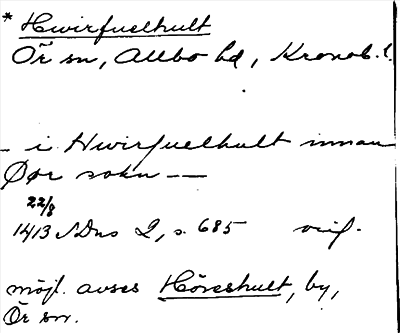 * Hwirfuelhult
Ör sn, Allbo hd, Kronob. l.
- i Hwirfuelhult innan
Ør sokn --
22/8
1413 SDns 2, s. 685 orig.
möjl. avses Höreshult, by,
Ör sn.